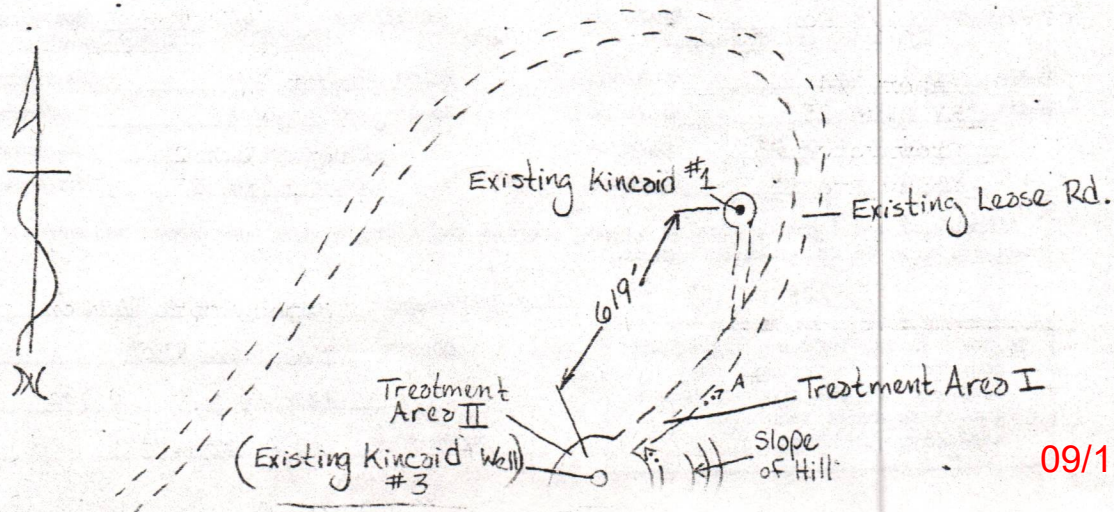 Existing Kincaid #1
Existing Lease Rd.
619'
A
Treatment
Area II
Treatment Area I
(Existing Kincaid Well)
#3
Slope
of Hill
N
09/1